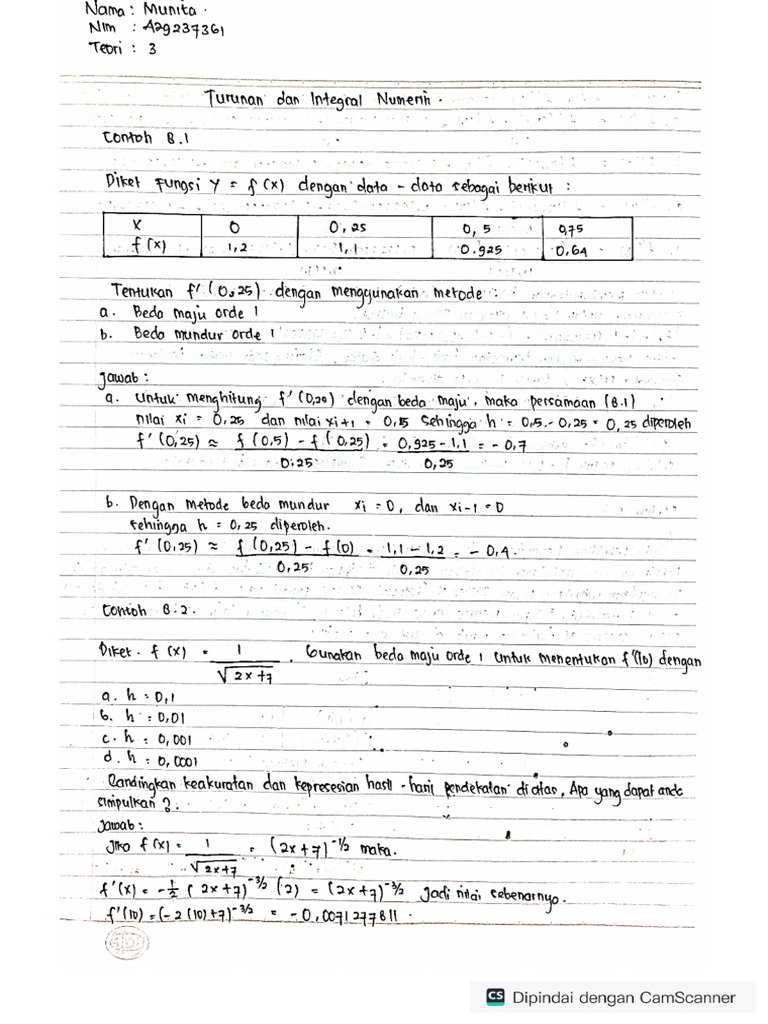 Nama : Munita .
Nim : A29237361
Teori : 3
Turunan dan Integral Numerik .
Contoh 8.1
Diket Fungsi y = f(x) dengan data - data sebagai berikut :
x 0 0,25 0,5 0,75
f(x) 1,2 1,1 0.925 0,64
Tentukan f'(0,25) dengan menggunakan metode :
a. Beda maju orde 1
b. Beda mundur orde 1
Jawab :
a. Untuk menghitung f'(0,20) dengan beda maju, maka persamaan (8.1)
nilai xi = 0,25 dan nilai xi+1 = 0,5 Sehingga h = 0,5 - 0,25 = 0,25 diperoleh
f'(0,25) ≈ f(0,5) - f(0,25) = 0,925 - 1,1 = - 0,7
0.25 0,25
b. Dengan metode beda mundur xi = 0, dan xi-1 = 0
sehingga h = 0,25 diperoleh.
f'(0,25) ≈ f(0,25) - f(0) = 1,1 - 1,2 = - 0,4.
0,25 0,25
Contoh 8.2.
Diket. f(x) = 1 . Gunakan beda maju orde 1 untuk menentukan f'(10) dengan
√2x+7
a. h = 0,1
b. h = 0,01
c. h = 0,001
d. h = 0,0001
Bandingkan keakuratan dan kepresesian hasil - hasil pendekatan di atas, Apa yang dapat anda
simpulkan ?.
Jawab :
Jika f(x) = 1 = (2x+7)^-1/2 maka.
√2x+7
f'(x) = -1/2 (2x+7)^-3/2 (2) = (2x+7)^-3/2 Jadi nilai sebenarnyo.
f'(10) = (-2(10)+7)^-3/2 = -0,0071277811.
SIDU
CS Dipindai dengan CamScanner